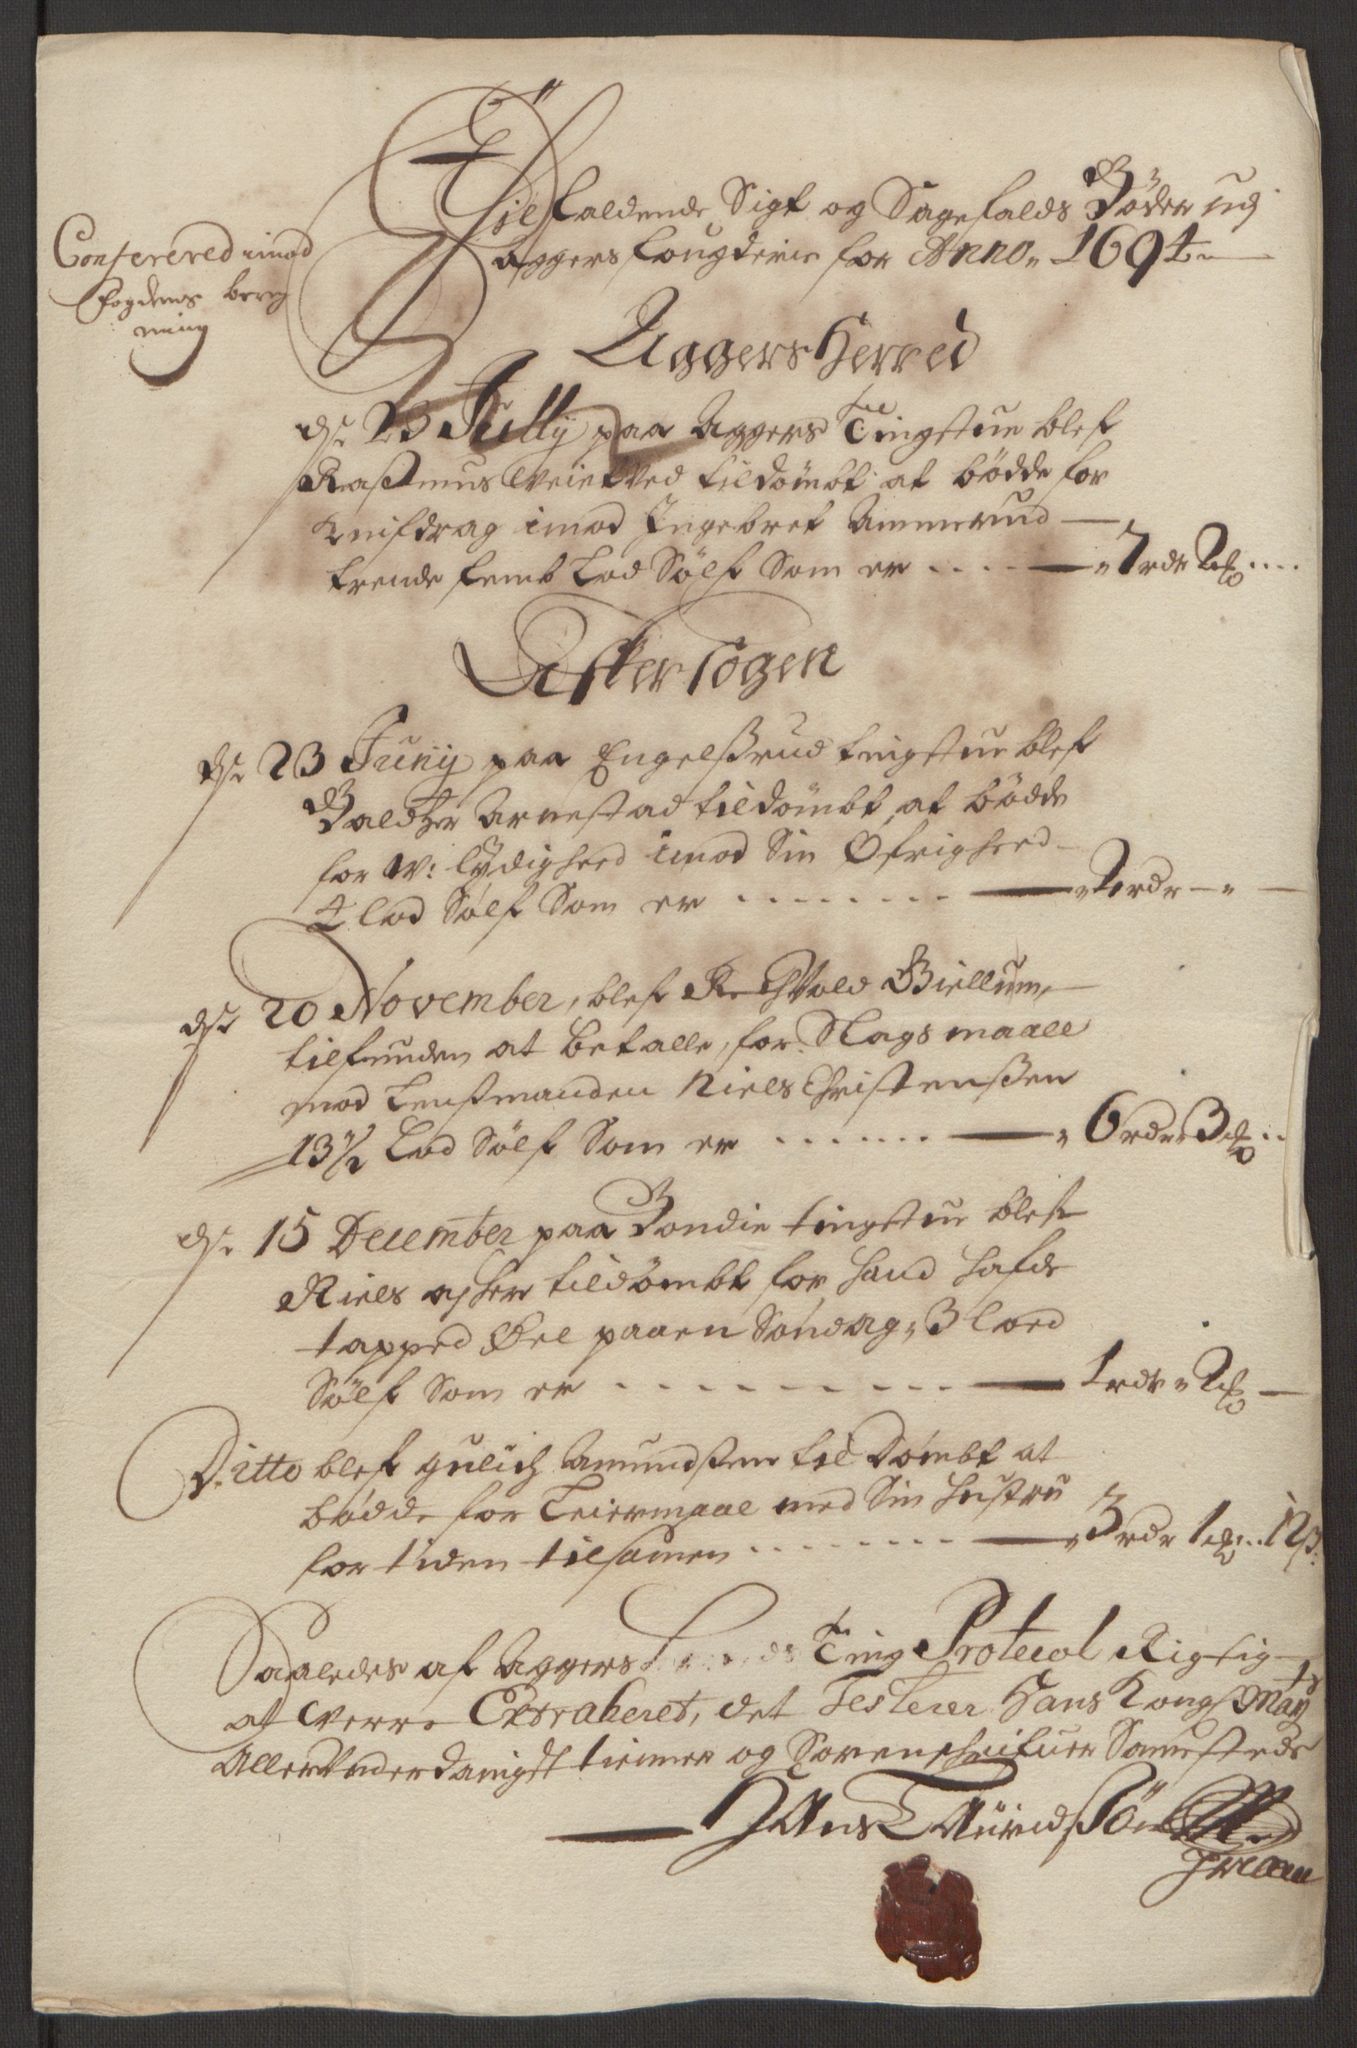 Conferered imod
fogdens bereg
ning
Tilfaldende Sigt og Sagefalds Bøder udj
Aggers fougderie for Anno 1694
Aggers Herred
ds: 23 Jully paa Aggers Tingstue blef
Rasmus Veitved tildømbt at bødde for
Knifdrag imod Ingebret Ammerud
trende femb Lod Sølf Som er - 7 rdr 2
Asker Sogen
ds: 23 Junij paa Engelsrud tingstue blef
Baldzer Arnestad tildømbt at bødde
for W: lydigheed imod Sin Øfrigheed
4 lod Sølf Som er - 2 rdr
ds: 20 November, blef Rechvold Biellum,
tilfunden at betalle, for Slagsmaall
mod Lensmanden Niels Christensen
13½ Lod Sølf Som er - 6 rdr 3
ds: 15 December paa Bondie tingstue blef
Niels tildømbt for hand hafde
tapped Øel paa en Søndag, 3 lod
Sølf Som er - 1 rdr 2
Ditto blef gulich Amundsen til Dømbt at
bødde for Leiermaal med Sin hustru
for tiden tilsamen - 3 rdr 1 12 s:
Saaledes af Aggers Ting Protecol Rigtig
at verre Extraheret, det Testerer Hans Kongl May
Allerunderdanigst tienner og Sorenschrifuer Sammesteds
Hans Taurids Sön